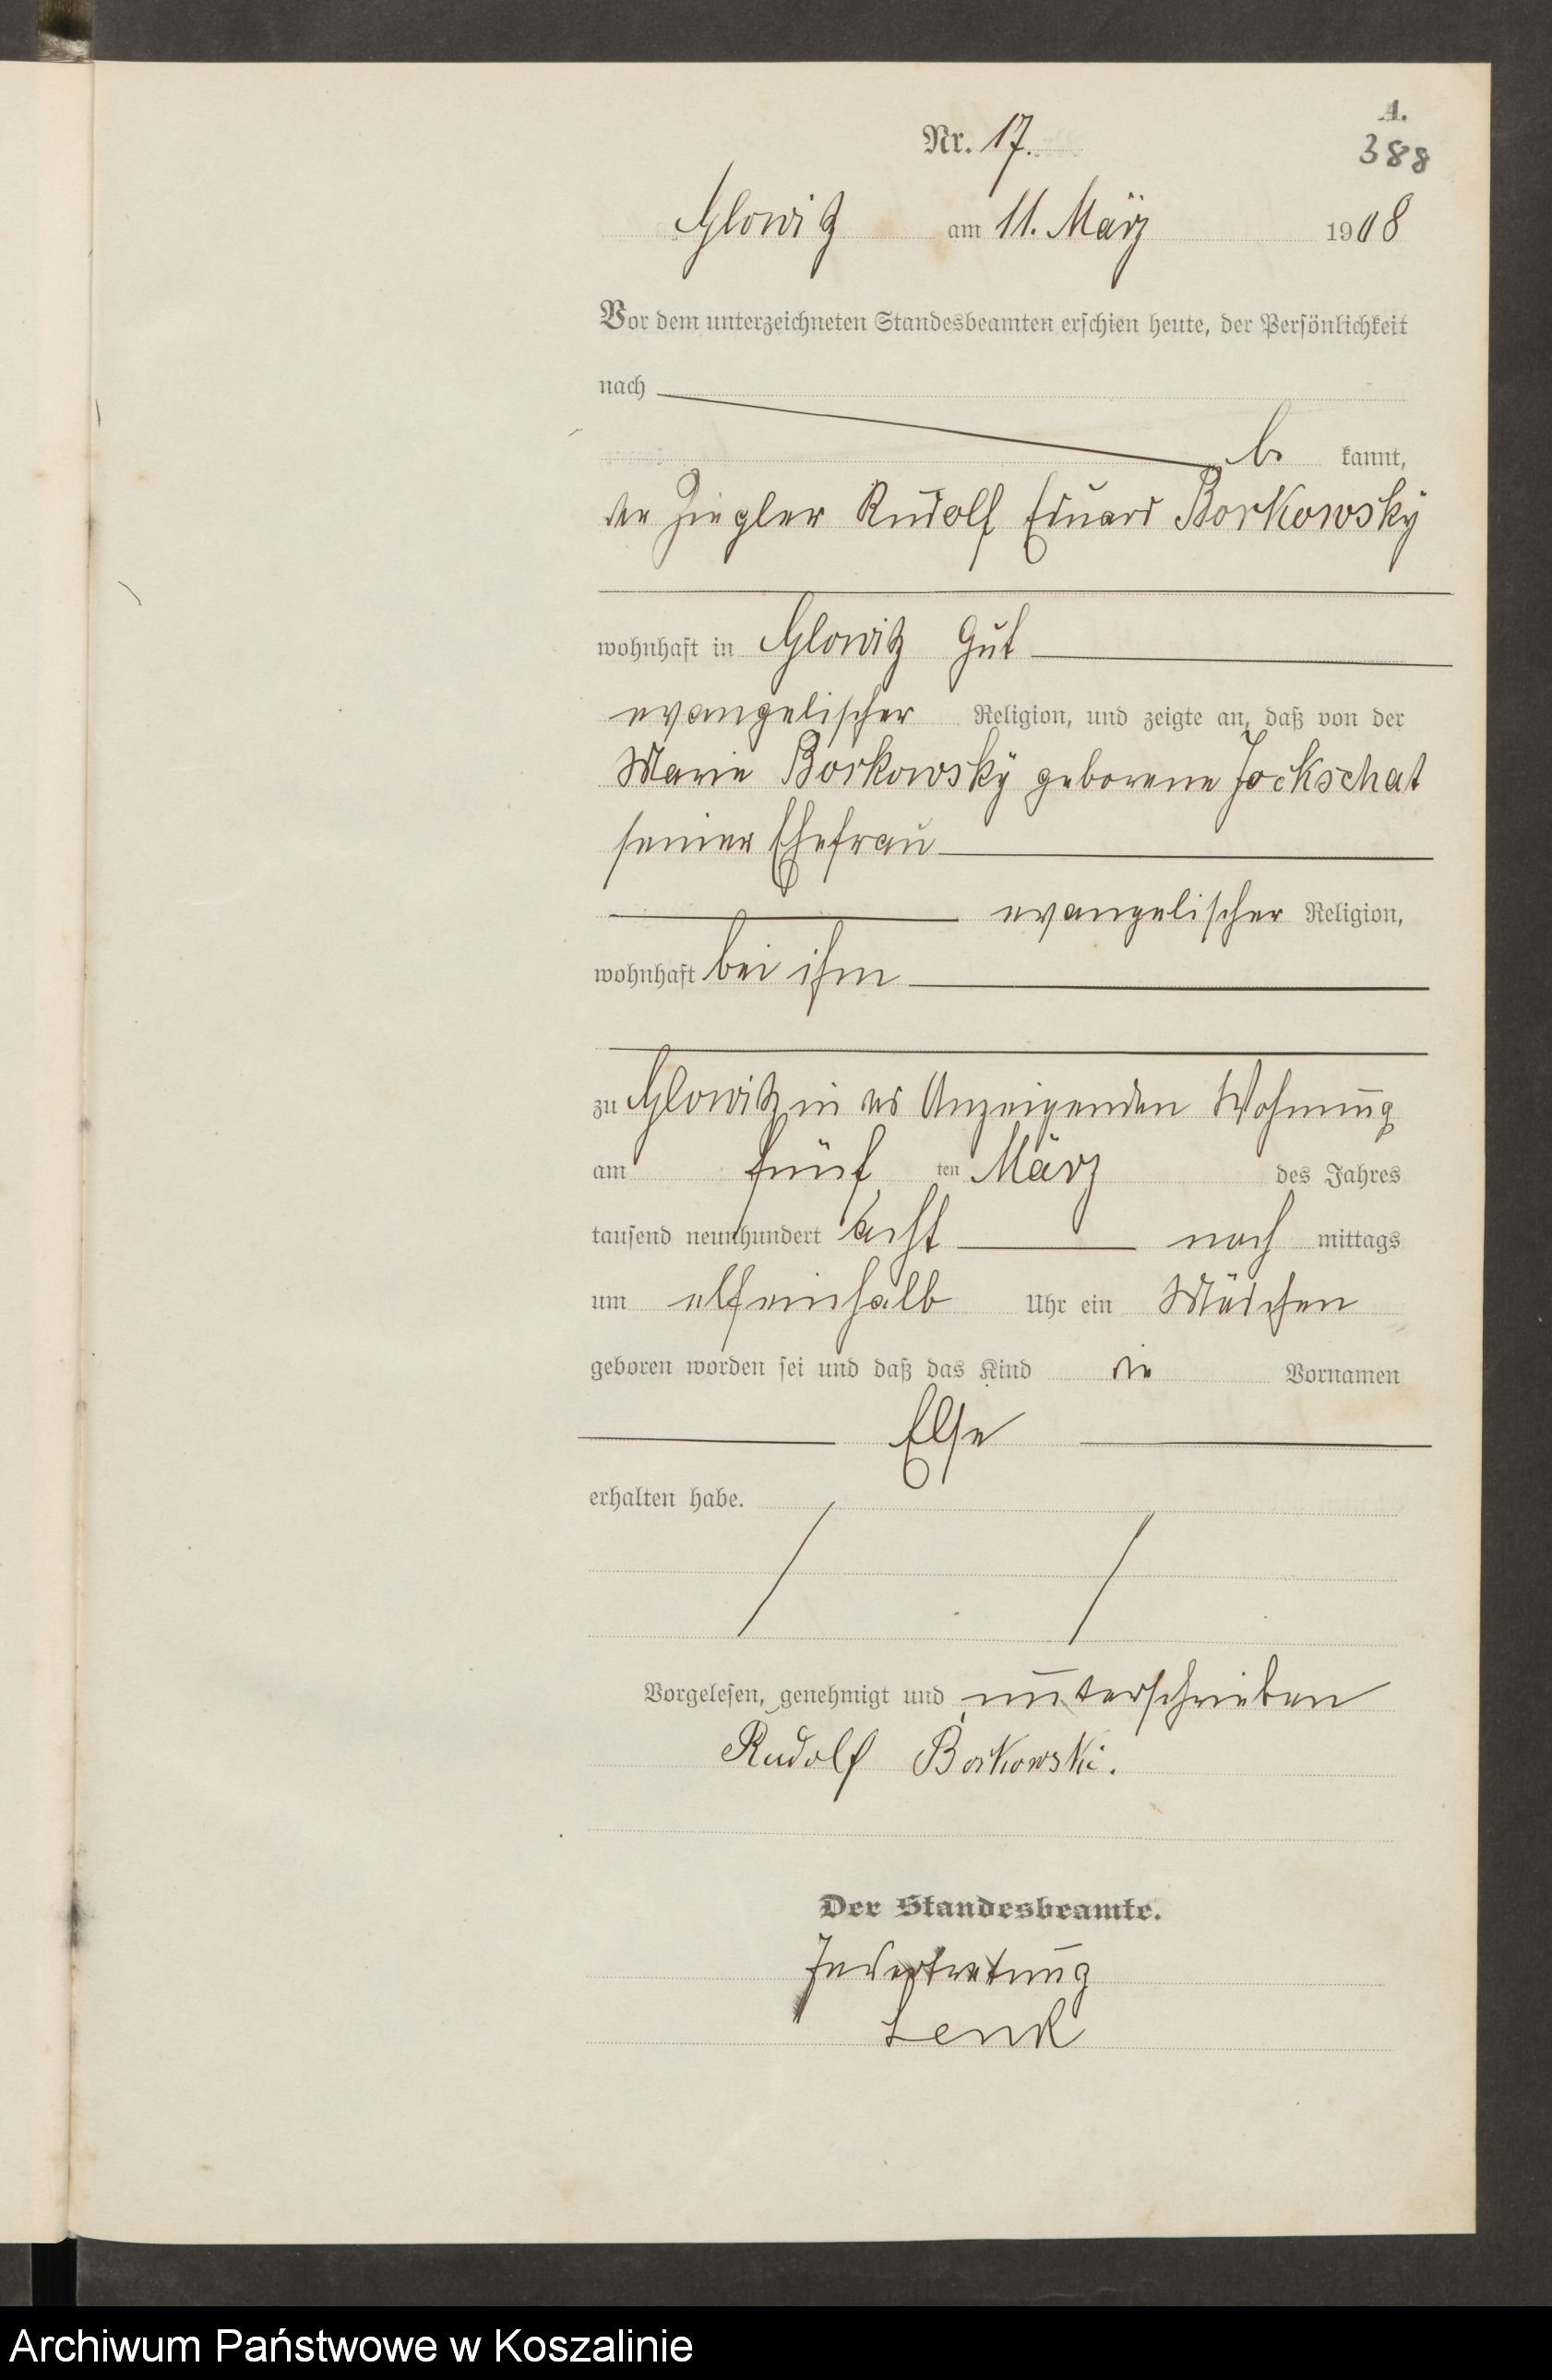 A.
388
Nr. 17.
Glowitz am 11. März 1908
Vor dem unterzeichneten Standesbeamten erschien heute, der Persönlichkeit
nach
be kannt,
der Ziegler Rudolf Eduard Borkowsky
wohnhaft in Glowitz Gut
evangelischer Religion, und zeigte an, daß von der
Marie Borkowsky geborene Jockschat
seiner Ehefrau
evangelischer Religion,
wohnhaft bei ihm
zu Glowitz in des Anzeigenden Wohnung
am fünf ten März des Jahres
tausend neunhundert acht nach mittags
um elfeinhalb Uhr ein Mädchen
geboren worden sei und daß das Kind die Vornamen
Else
erhalten habe.
Vorgelesen, genehmigt und unterschrieben
Rudolf Borkowski.
Der Standesbeamte.
In Vertretung
Lenk
Archiwum Państwowe w Koszalinie